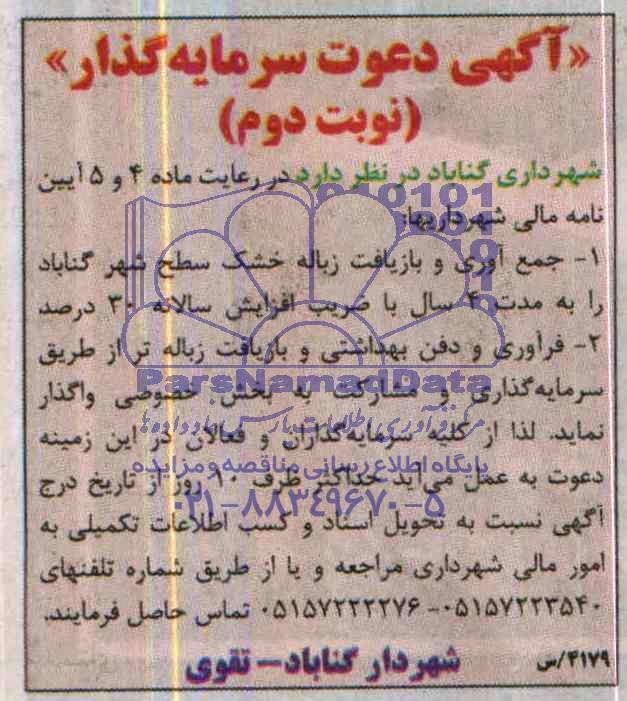 «آگهی دعوت سرمایه‌گذار»
(نوبت دوم)
شهرداری گناباد در نظر دارد در رعایت ماده ۴ و ۵ آیین
نامه مالی شهرداریها:
۱- جمع آوری و بازیافت زباله خشک سطح شهر گناباد
را به مدت ۴ سال با ضریب افزایش سالانه ۳۰ درصد
۲- فرآوری و دفن بهداشتی و بازیافت زباله تر از طریق
ParsNamadData
سرمایه‌گذاری و مشارکت به بخش خصوصی واگذار
مرکز فرآوری اطلاعات پارس نماد داده‌ها
نماید. لذا از کلیه سرمایه‌گذاران و فعالان در این زمینه
پایگاه اطلاع رسانی مناقصه و مزایده
دعوت به عمل می‌آید حداکثر ظرف ۱۰ روز از تاریخ درج
۰۲۱-۸۸۳۴۹۶۷۰-۵
آگهی نسبت به تحویل اسناد و کسب اطلاعات تکمیلی به
امور مالی شهرداری مراجعه و یا از طریق شماره تلفنهای
۰۵۱۵۷۲۲۳۵۴۰-۰۵۱۵۷۲۲۲۲۷۶ تماس حاصل فرمایند.
شهردار گناباد – تقوی
۴۱۷۹/س